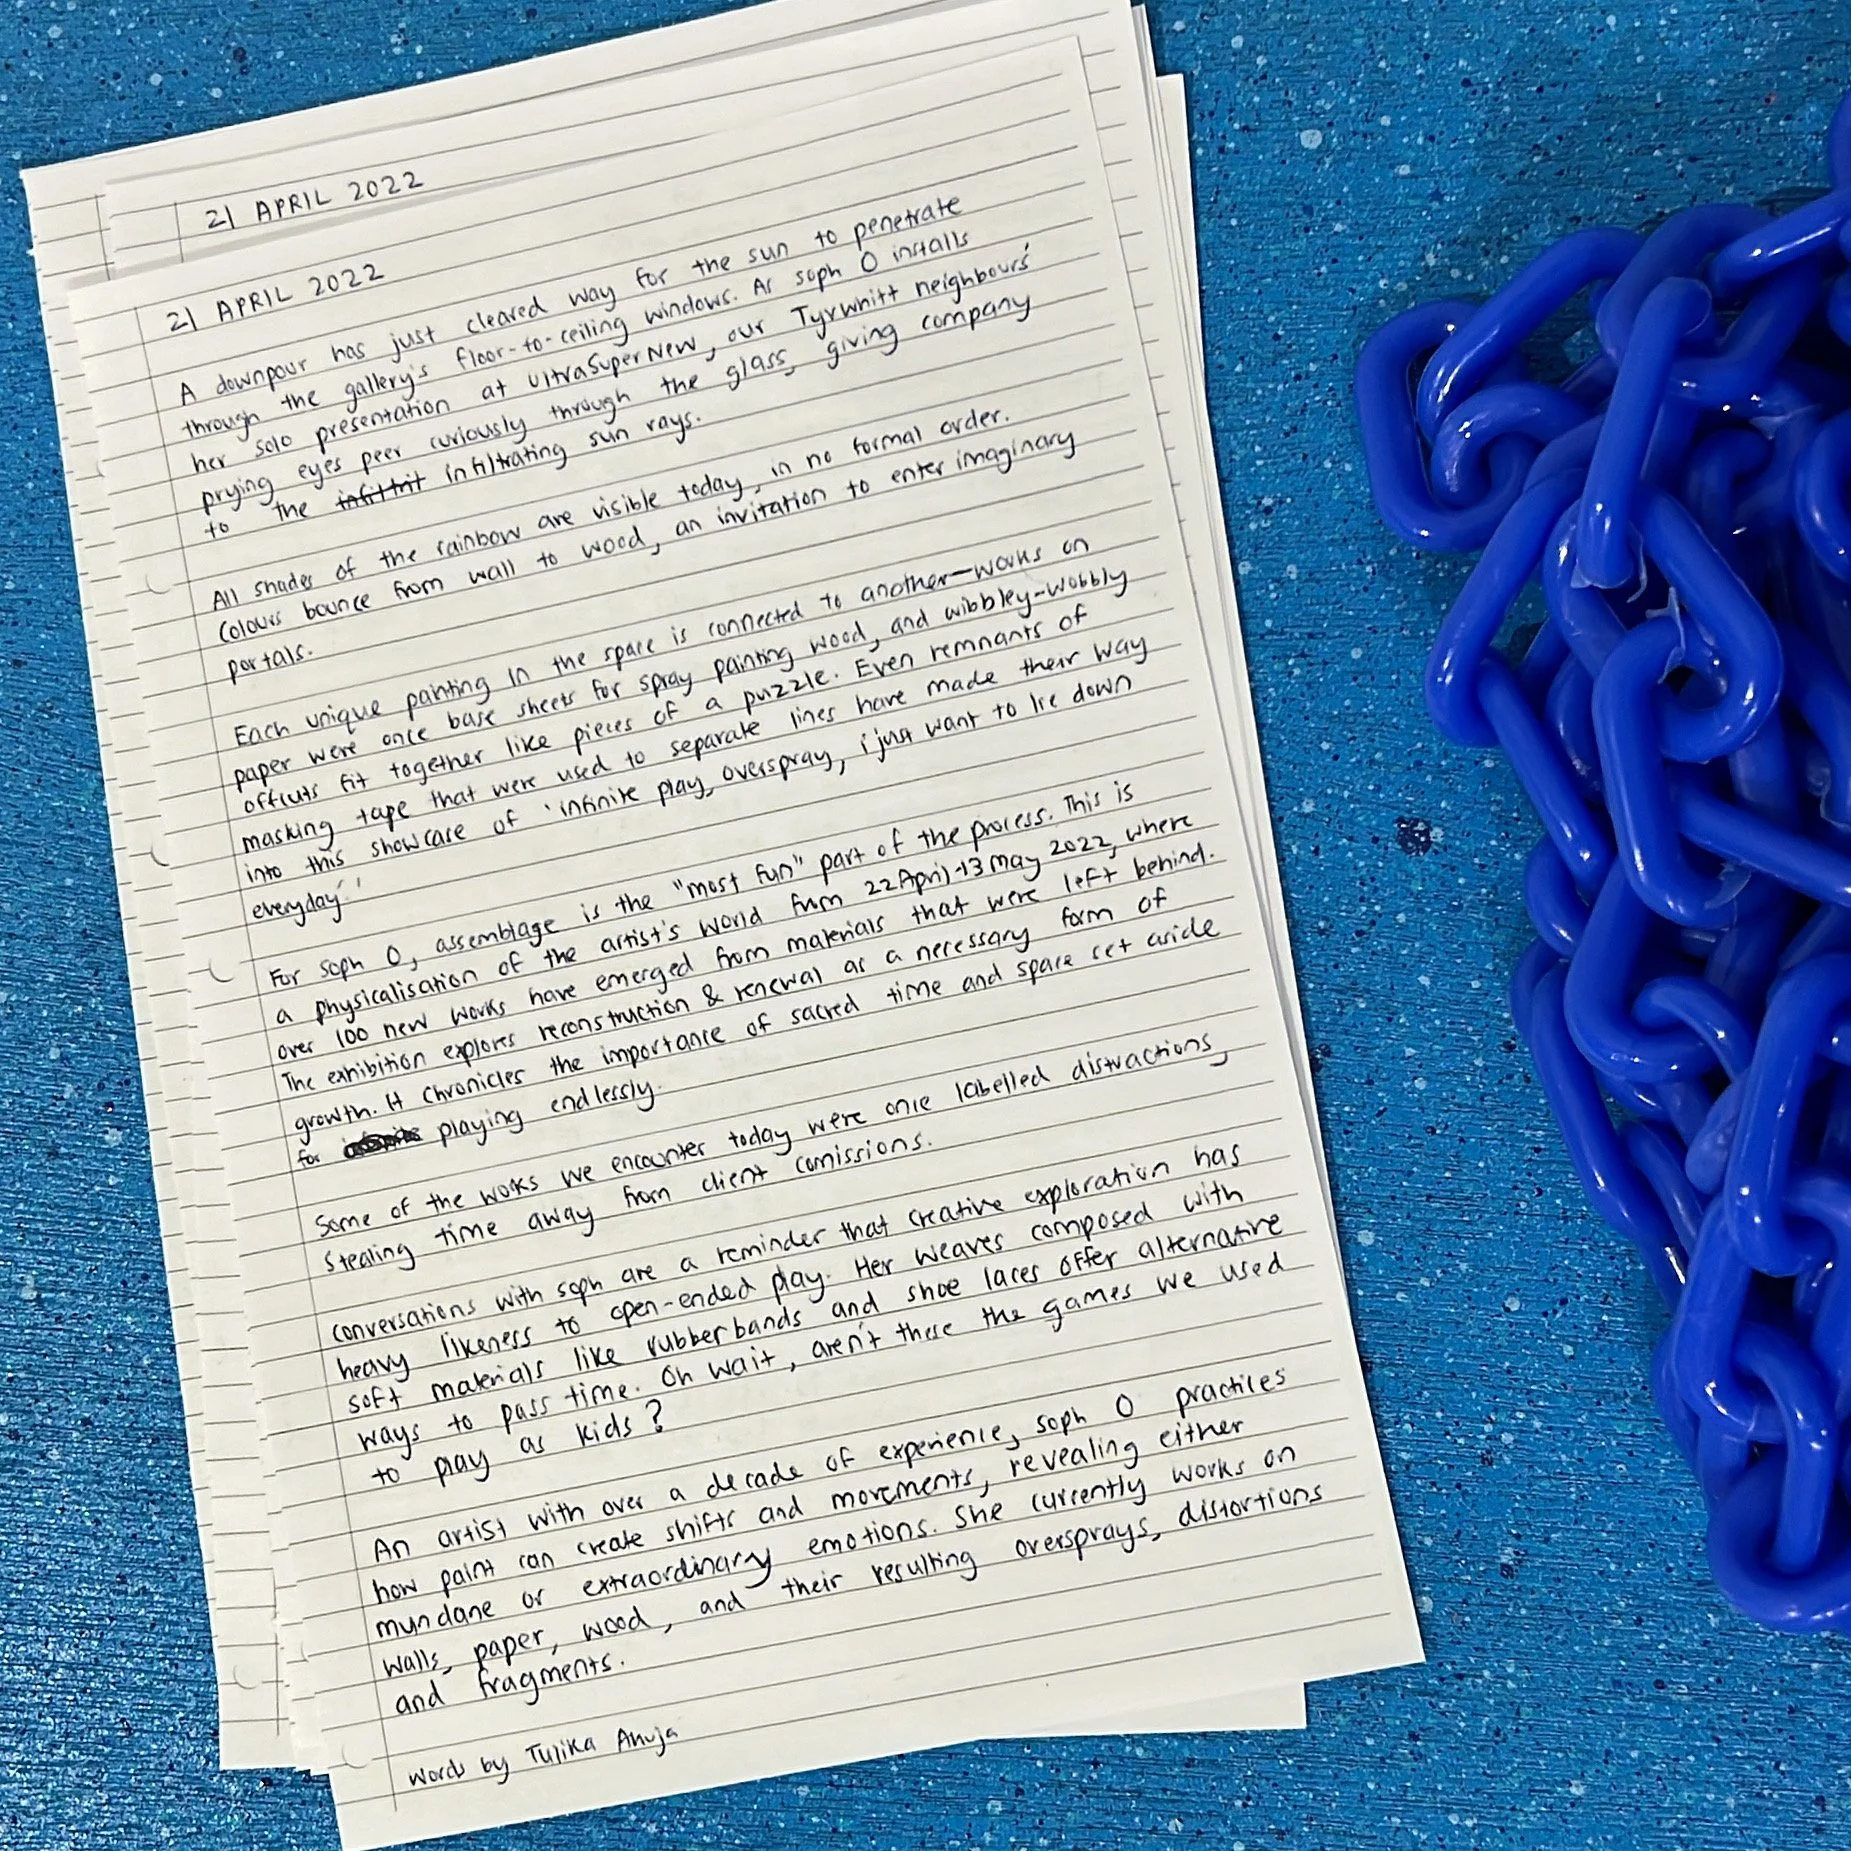 21 APRIL 2022
21 APRIL 2022
A downpour has just cleared way for the sun to penetrate
through the gallery's floor-to-ceiling windows. As soph O installs
her solo presentation at UltraSuperNew, our Tyrwhitt neighbours'
prying eyes peer curiously through the glass, giving company
to the infiltrating sun rays.
All shades of the rainbow are visible today, in no formal order.
Colours bounce from wall to wood, an invitation to enter imaginary
portals.
Each unique painting in the space is connected to another—works on
paper were once base sheets for spray painting wood, and wibbley-wobbly
offcuts fit together like pieces of a puzzle. Even remnants of
masking tape that were used to separate lines have made their way
into this showcase of 'infinite play, overspray, i just want to lie down
everyday.'
For soph O, assemblage is the "most fun" part of the process. This is
a physicalisation of the artist's world from 22 April-13 May 2022, where
over 100 new works have emerged from materials that were left behind.
The exhibition explores reconstruction & renewal as a necessary form of
growth. It chronicles the importance of sacred time and space set aside
for playing endlessly.
Some of the works we encounter today were once labelled distractions,
stealing time away from client comissions.
Conversations with soph are a reminder that creative exploration has
heavy likeness to open-ended play. Her weaves composed with
soft materials like rubberbands and shoe laces offer alternative
ways to pass time. Oh wait, aren't these the games we used
to play as kids?
An artist with over a decade of experience, soph O practices
how paint can create shifts and movements, revealing either
mundane or extraordinary emotions. She currently works on
walls, paper, wood, and their resulting oversprays, distortions
and fragments.
Words by Tulika Ahuja